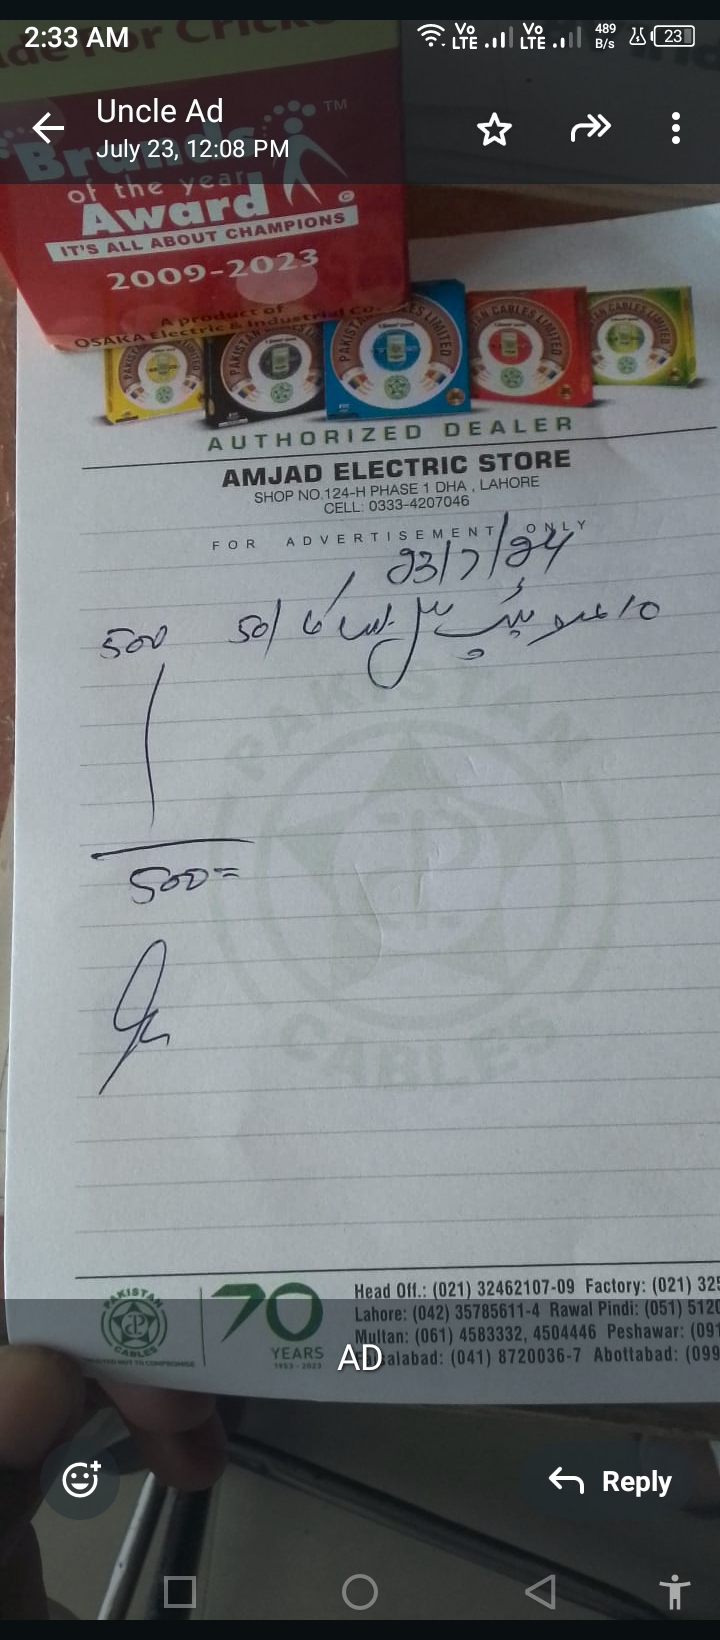 2:33 AM
Vo LTE Vo LTE 489 B/s 23
Uncle Ad
July 23, 12:08 PM
ade for Cricke
Brands TM
of the year
Award ©
IT'S ALL ABOUT CHAMPIONS
2009-2023
A product of
OSAKA Electric & Industrial Co.
PAKISTAN CABLES LIMITED
AUTHORIZED DEALER
AMJAD ELECTRIC STORE
SHOP NO.124-H PHASE 1 DHA , LAHORE
CELL: 0333-4207046
FOR ADVERTISEMENT ONLY
23/7/24
10 عدد 50/ 500
500=
PAKISTAN
CABLES
PAKISTAN CABLES
70 YEARS
1953 - 2023
TRUSTED NOT TO COMPROMISE
Head Off.: (021) 32462107-09 Factory: (021) 325
Lahore: (042) 35785611-4 Rawal Pindi: (051) 5120
Multan: (061) 4583332, 4504446 Peshawar: (091
salabad: (041) 8720036-7 Abottabad: (099
AD
Reply